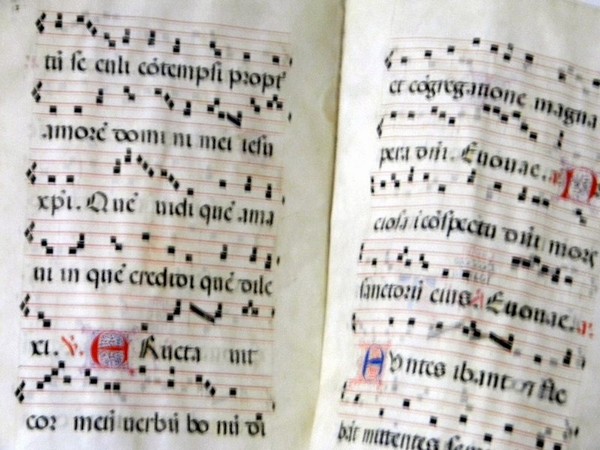 tū sc̄culi cōtempsi propt̕
amorē domi ni mei iesu
xp̄i. Quē uidi quē ama
ui in quē credidi quē dile
xi. ℣. E Ructa uit
cor meū uerbū bo nū di
et cōgregatione magna
pera dn̄i. Euouae. P
ciosa i cōspectu dn̄i mors
sanctorū eius A Euouae. a.
E Untes ibant et fle
bāt mittentes